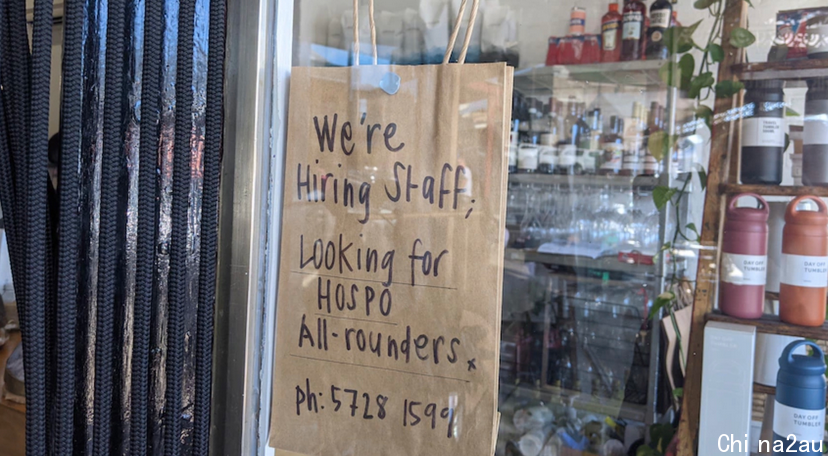 We're
Hiring Staff;
Looking for
HOSPO
All-rounders x
ph: 5728 1599
DAY OFF
TUMBLER
DAY OFF
TUMBLER
DAY OFF
TUMBLER
China2au